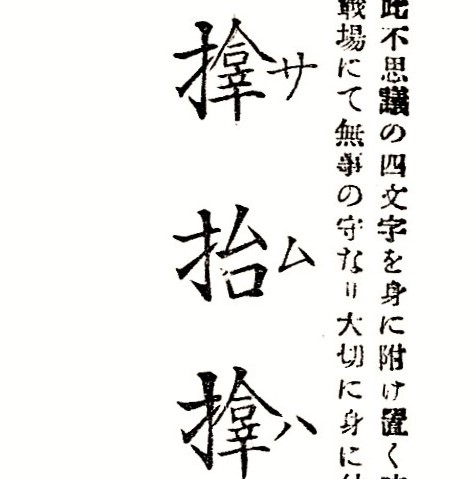 此不思議の四文字を身に附け置く
戰場にて無事の守なり大切に身に
サムハ
𪮷抬𪮷